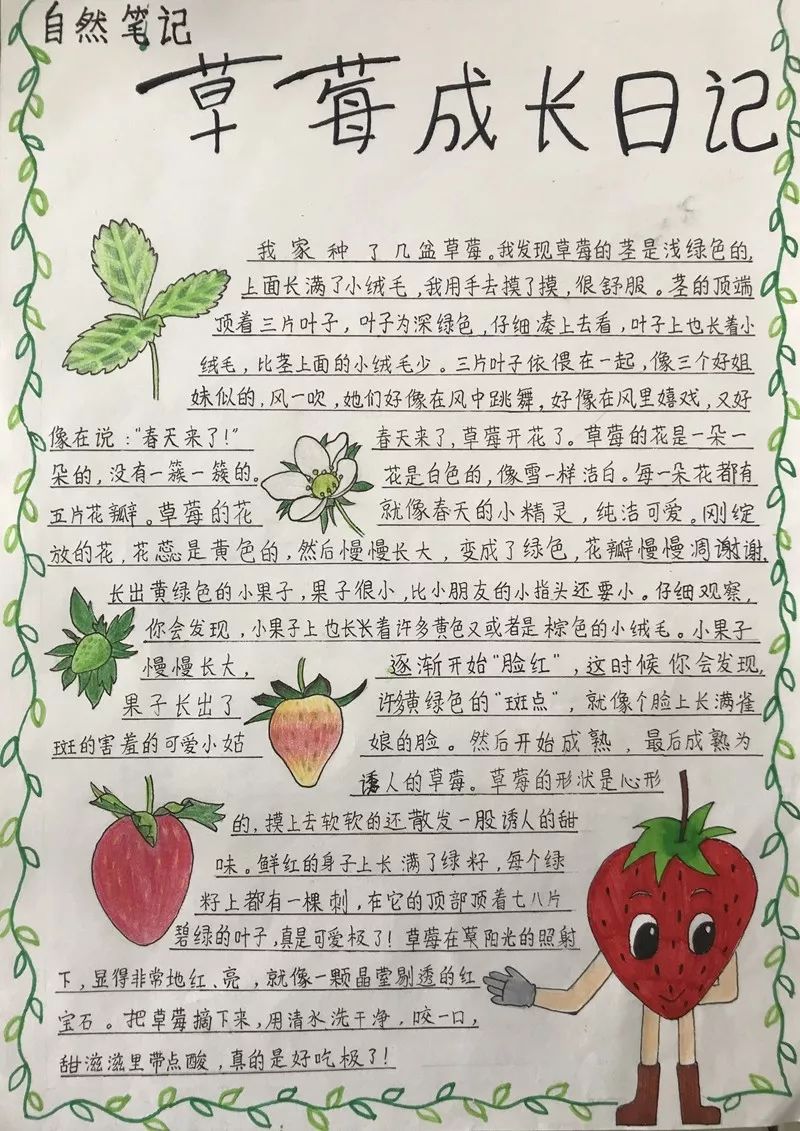 自然笔记
草莓成长日记
我家种了几盆草莓。我发现草莓的茎是浅绿色的,
上面长满了小绒毛,我用手去摸了摸,很舒服。茎的顶端
顶着三片叶子,叶子为深绿色,仔细凑上去看,叶子上也长着小
绒毛,比茎上面的小绒毛少。三片叶子依偎在一起,像三个好姐
妹似的,风一吹,她们好像在风中跳舞,好像在风里嬉戏,又好
像在说:“春天来了!” 春天来了,草莓开花了。草莓的花是一朵一
朵的,没有一簇一簇的。 花是白色的,像雪一样洁白。每一朵花都有
五片花瓣。草莓的花 就像春天的小精灵,纯洁可爱。刚绽
放的花,花蕊是黄色的,然后慢慢长大,变成了绿色,花瓣慢慢凋谢谢,
长出黄绿色的小果子,果子很小,比小朋友的小指头还要小。仔细观察,
你会发现,小果子上也长长着许多黄色又或者是棕色的小绒毛。小果子
慢慢长大, 逐渐开始“脸红”,这时候你会发现,
果子长出了 许多黄绿色的“斑点”,就像个脸上长满雀
斑的害羞的可爱小姑 娘的脸。然后开始成熟,最后成熟为
诱人的草莓。草莓的形状是心形
的,摸上去软软的还散发一股诱人的甜
味。鲜红的身子上长满了绿籽,每个绿
籽上都有一棵刺,在它的顶部顶着七八片
碧绿的叶子,真是可爱极了!草莓在阳光的照射
下,显得非常地红、亮,就像一颗晶莹剔透的红
宝石。把草莓摘下来,用清水洗干净,咬一口,
甜滋滋里带点酸,真的是好吃极了!